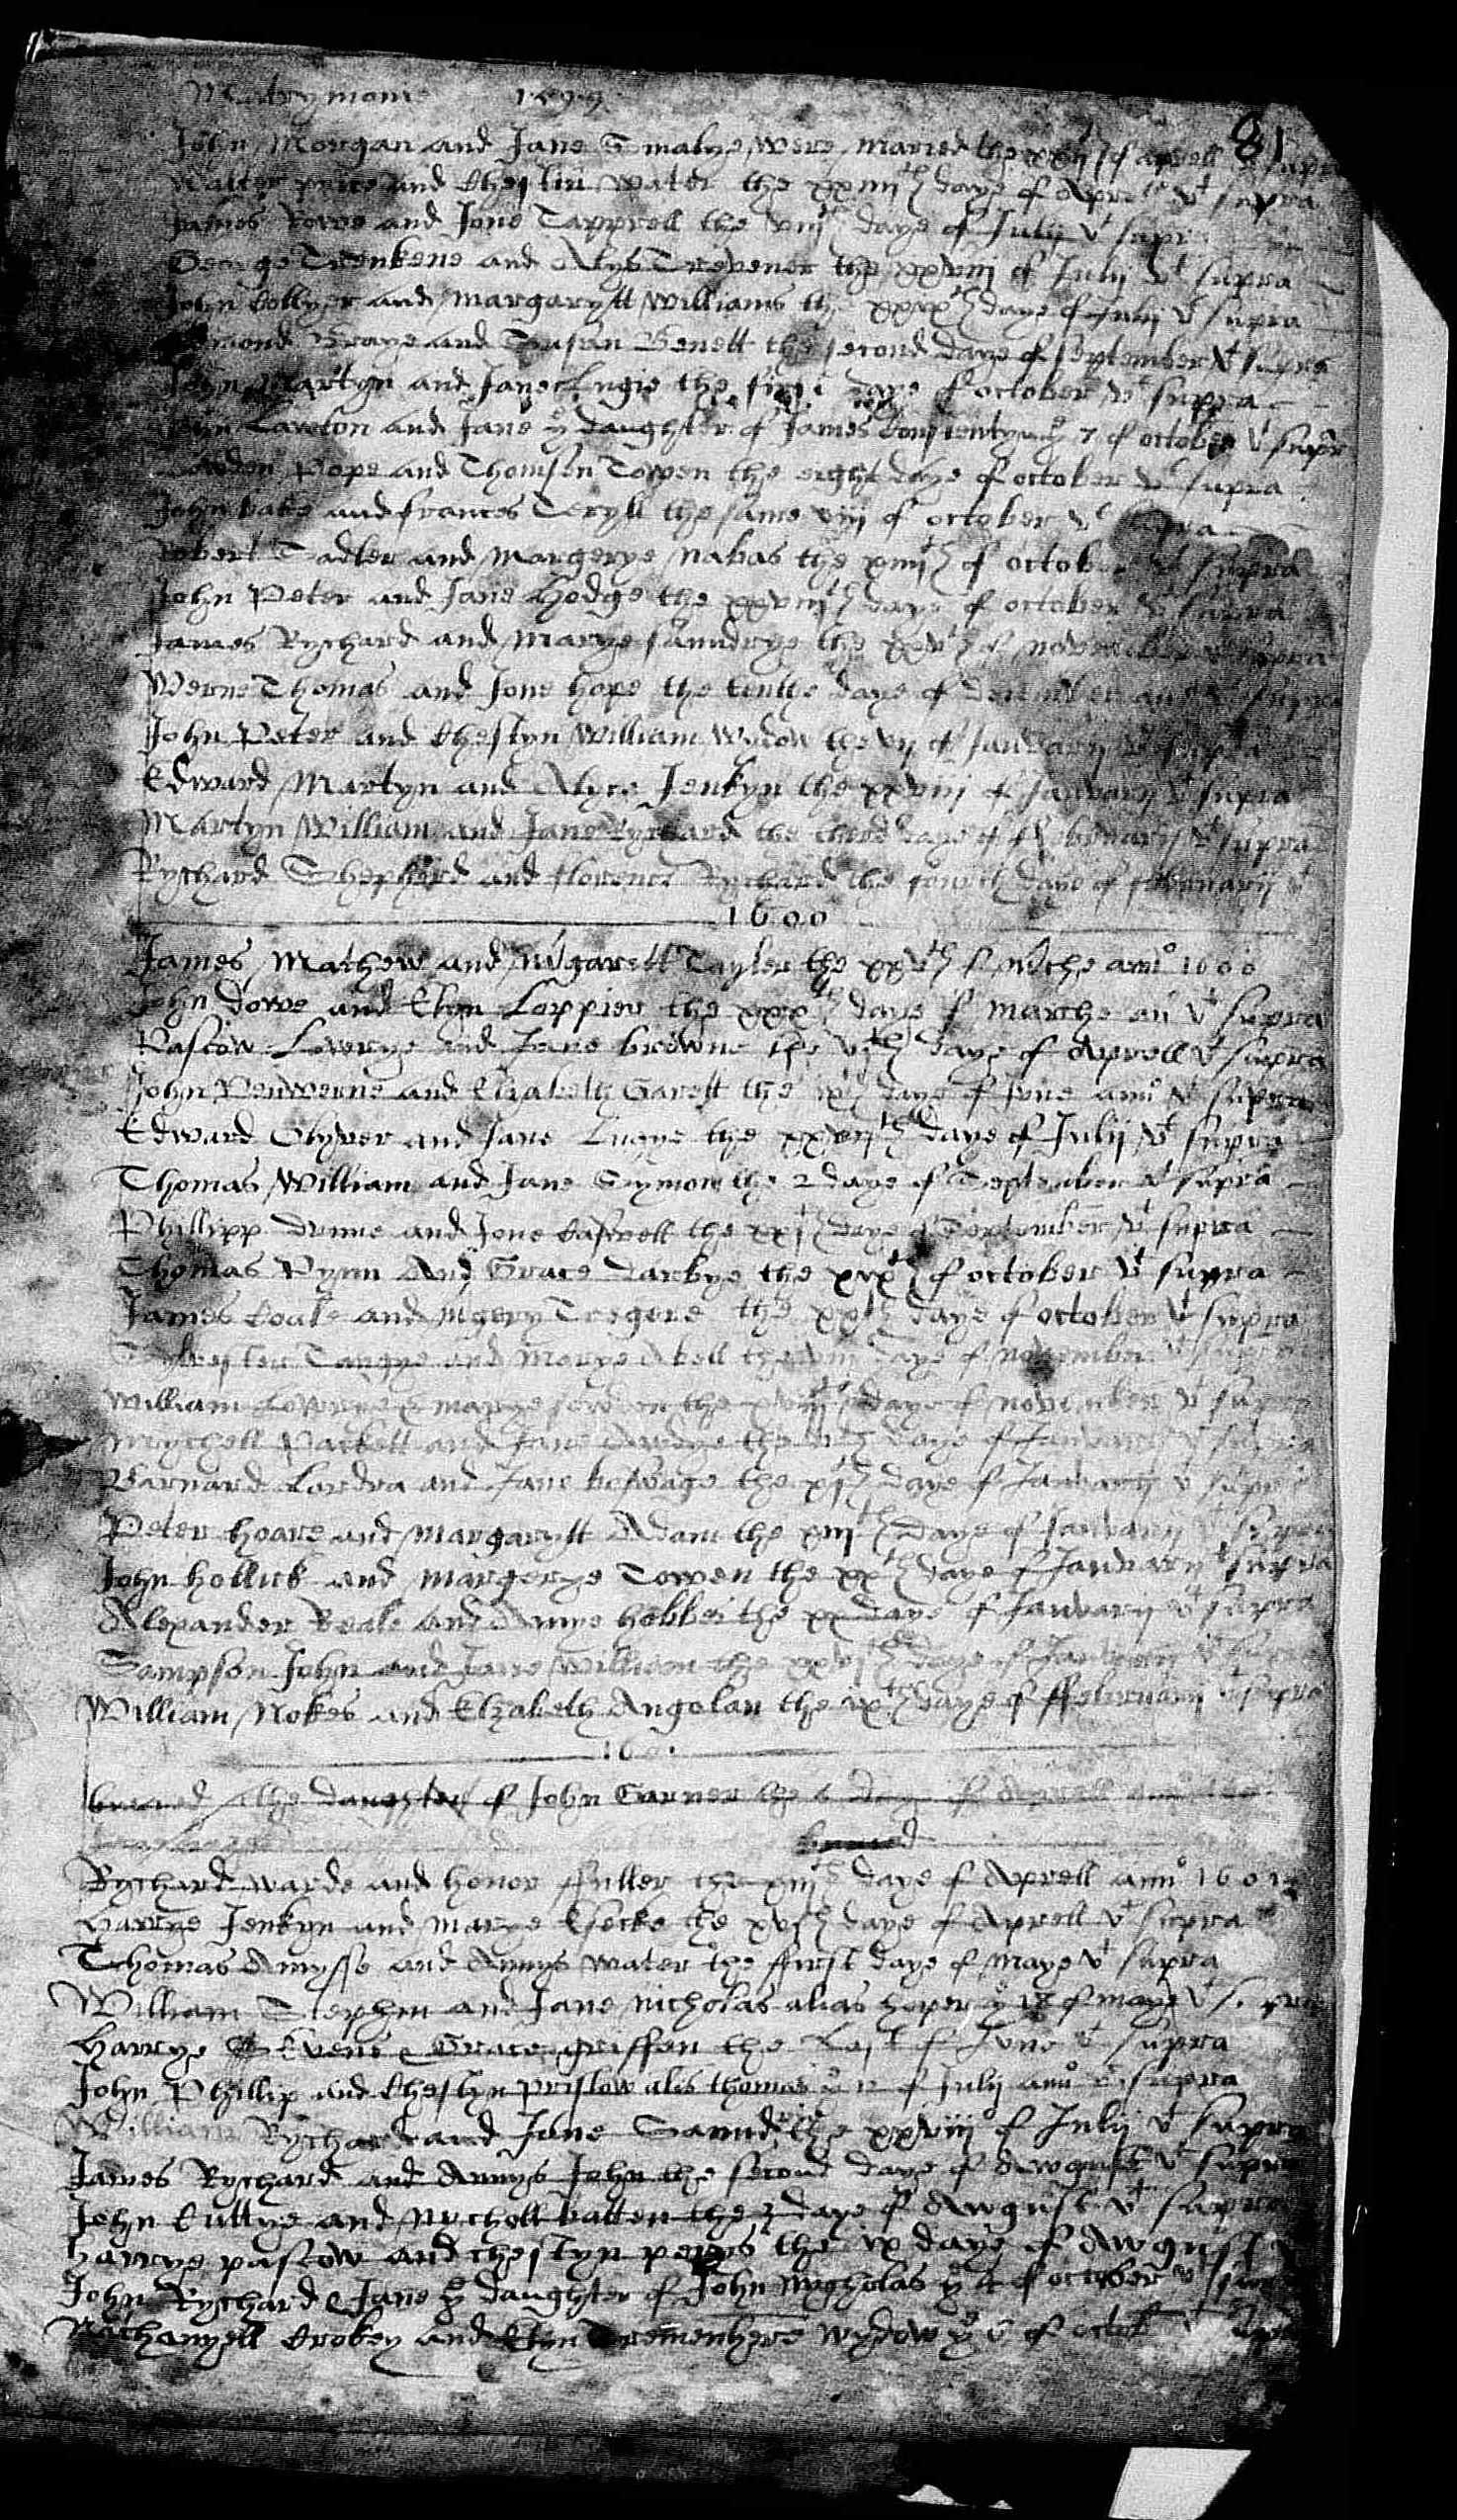 Matrymonie 1599
81
John Morgan and Jane Smalye were maried the xxij of aprell supra
Walter price and Chestin water the xxiiijth daye of Aprell vt supra
James Rowe and Jone Tapprell the viijth daye of Julij vt supra
George Trenkene and Alys Trevener the xxviij of Julij vt supra
John Collyer and margarytt Williams the xxixth daye of Julij vt supra
Edmond Braye and Susan Benett the second daye of september vt supra
John Martyn and Jane Lugie the first daye of october vt supra
John Lawton and Jane ye daughter of James ye 7 of october vt supr
Pope and Thomsen Towen the eight daye of october vt supra
John bake and frances Teryll the same viij of october vt supra
Robert Sadler and Margerye Nabas the xiiijth of october vt supra
John Peter and Jane Hodge the xxviijth daye of october vt supra
James Rychard and Marye saundrye the xxvth of november vt supra
Werne Thomas and Jone hope the tenthe daye of december vt supra
John Peter and Chestyn William Wydow the vij of Januarij vt supra
Edward Martyn and Alyce Jenkyn the xxviij of Januarij vt supra
Martyn William and Jane Rychard the therd daye of ffebruarij vt supra
Rychard Shepherd and florence Rychard the fourth daye of februarij vt
1600
James Mathew and Mgarett Tayler the xxvth of mche anno 1600
John Dowe and Elyn Loppier the xxxth daye of marche an vt supra
Pascow Lowrye and Jane browne the vjth daye of Aprell vt supra
John Penwerne and Elizabeth Garett the ixth daye of June anno vt supra
Edward Olyver and Jane Lugye the xxviijth daye of Julij vt supra
Thomas William and Jane Symon the 2 daye of September vt supra
Phillipp dunne and Jone Caswell the xxjth daye of September vt supra
Thomas Pynn And Grace darbye the xixth of october vt supra
James Coake and Mgery Tregere the xxjth daye of october vt supra
Tangye and Marye Abell the viij daye of november vt supra
William Lowrye & marye the xviijth daye of november vt supra
Mychell Packett and Jane the daye of Januarij vt supra
Barnard Lordra and Jane boswage the xjth daye of Januarij vt supra
Peter hoare and Margarytt Adam the xiijth daye of Januarij vt supra
John hollick and Margerye Towen the xxth daye of Januarij vt supra
Alexander Beale and Annye hobbei the xx daye of Januarij vt supra
Sampson John and Jane William the xxvjth daye of Januarij vt supra
William Nokes and Elizabeth Angolan the ixth daye of ffebruarij vt supra
1601
buried the daughter of John Carner the 6 daye of Aprell
buried
Rychard warde and honor ffuller the xiijth daye of Aprell anno 1601
Harrye Jenkyn and Marye the xvjth daye of Aprell vt supra
Thomas Amysse and Annys Water the ffirst daye of Maye vt supra
William Stephin and Jane Nicholas alias hoper ye 18 of maye vt supra
Harrye Evens & Grace griffen the Last of June vt supra
John Phillip and Chestyn pristow alis thomas ye 12 of Julij anno vt supra
William Rychard and Jane Saundrie the xxviij of Julij vt supra
James Rychard and Annys John the second daye of Awgust vt supra
John Cuttye and Nycholl batten the 3 daye of Awgust vt supra
harrye pascow and Chestyn perys the ix daye of Awgust
John Rychard & Jane ye daughter of John Nycholas ye 4 of october vt supra
Nathanyell Crokey and Elyn Tremenhere wydow ye 6 of octob vt supra